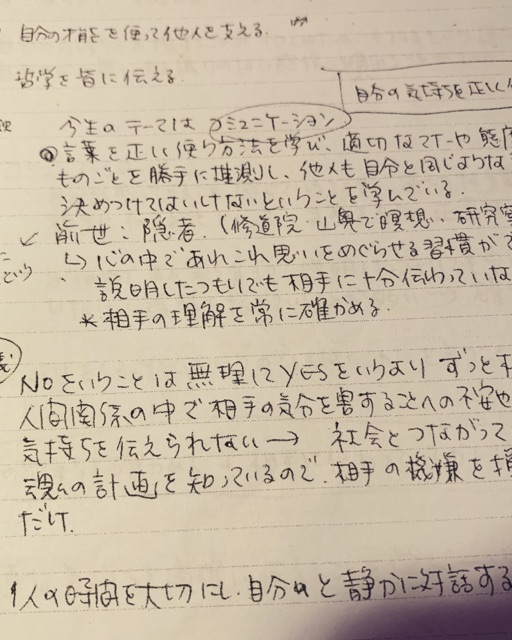 自分の才能を使って他人を支える.
哲学を皆に伝える
自分の気持を正しく
今生のテーマは コミュニケーション
言葉を正しく使う方法を学び、適切なマナーや態度
ものごとを勝手に推測し、他人も自分と同じような
決めつけてはいけないということを学んでいる.
前世:隠者. (修道院・山奥で瞑想、研究室
↳ 心の中であれこれ思いをめぐらせる習慣が
という
説明したつもりでも相手に十分伝わっていな
*相手の理解を常に確かめる.
Noをいうことは無理にYESをいうより ずっと
人間関係の中で相手の気分を害することへの不安
気持ちを伝えられない → 社会とつながって
魂の計画を知っているので、相手の機嫌を損
だけ.
1人の時間を大切にし、自分のと静かに対話する